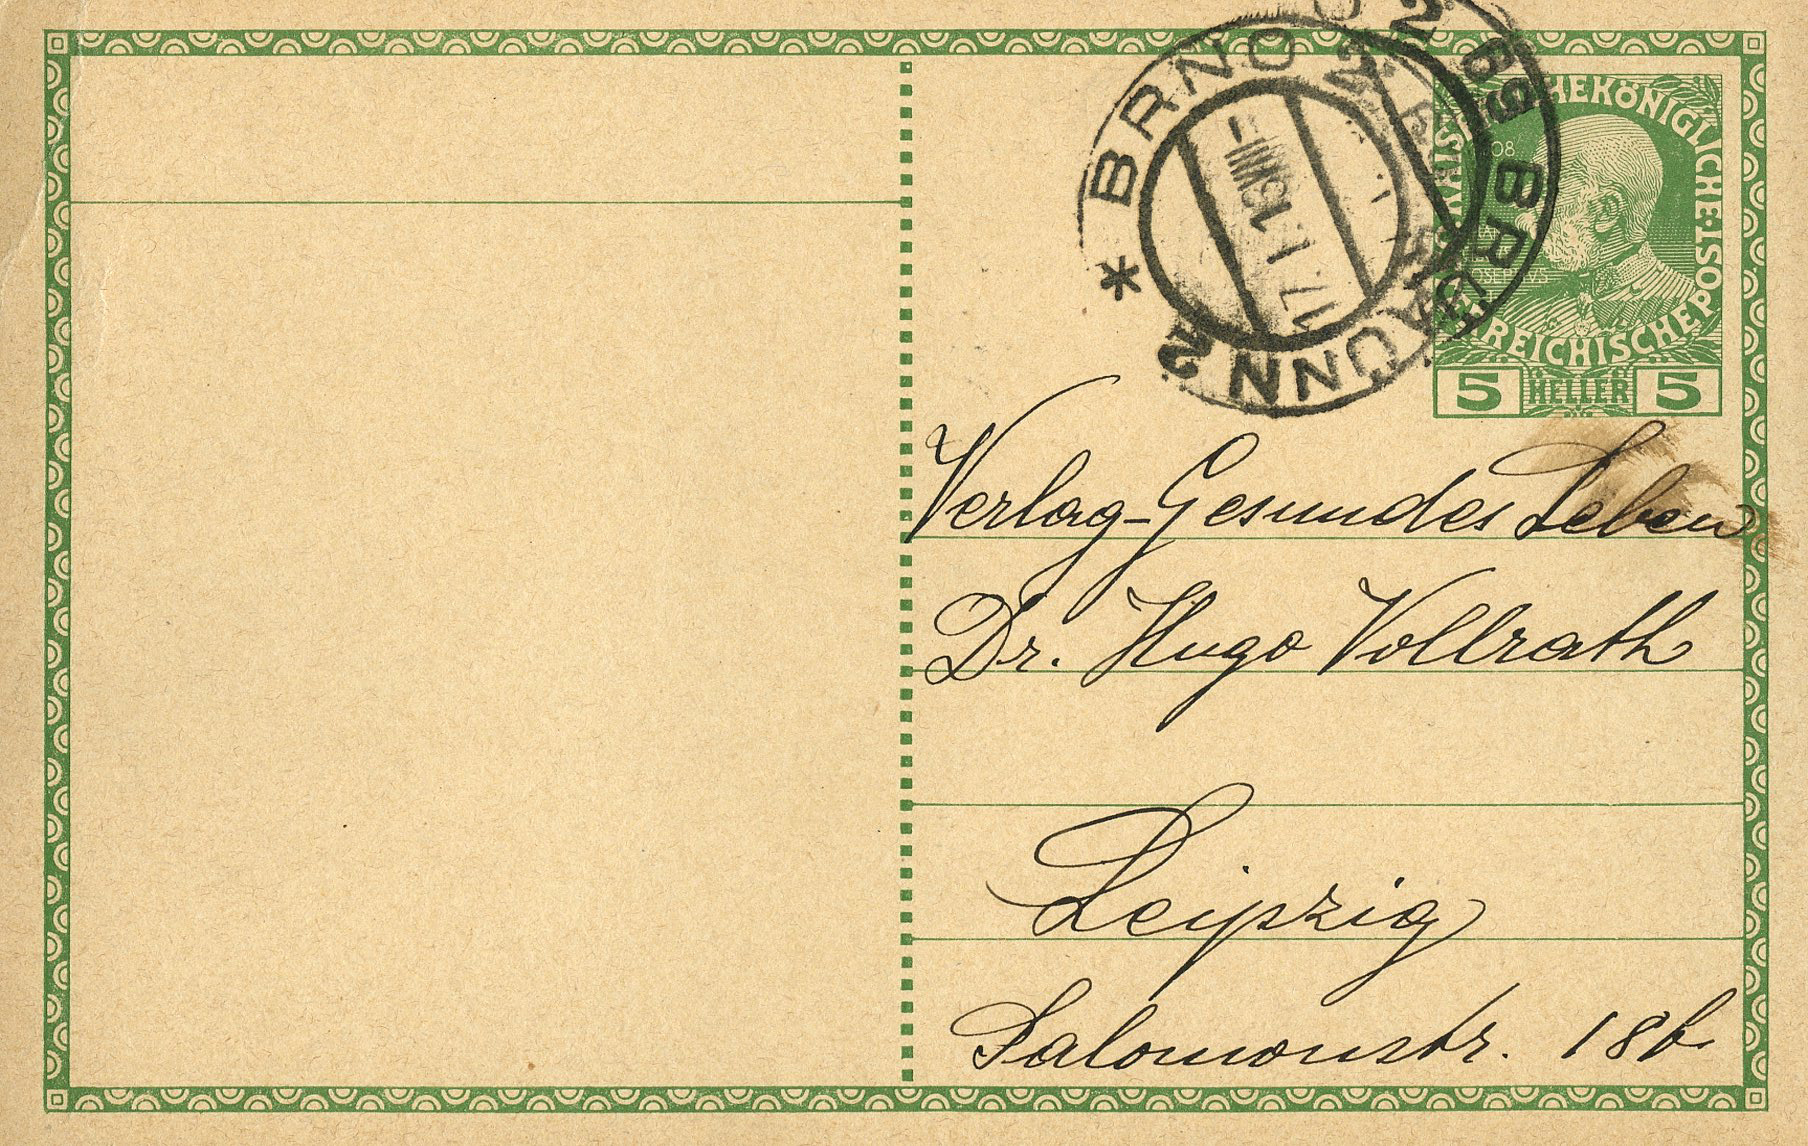 * BRNO 2 BRÜNN 2
17.I.13
KAISERLICHEKÖNIGLICHE
ÖSTERREICHISCHE POST
5 HELLER 5
Verlag-Gesundes Leben
Dr. Hugo Vollrath
Leipzig
Salomonstr. 18b.